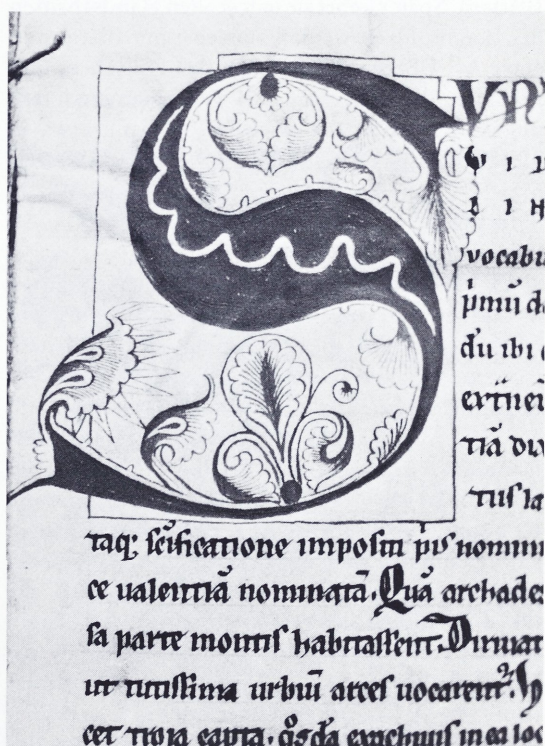 SVN
VID
LIN
vocabu
p̄miū da
dū ibi o
extruct
tiā dix
tus la
taq; sc̄ificatione impositi p̄us nomini
ce ualentiā nominatā. Quā archades
sa parte montis habitassent. Diriuat
ut tutissima urbiū arces uocarent᷑. H
cet troia capta, q̊sdā exachiuis in ea loc